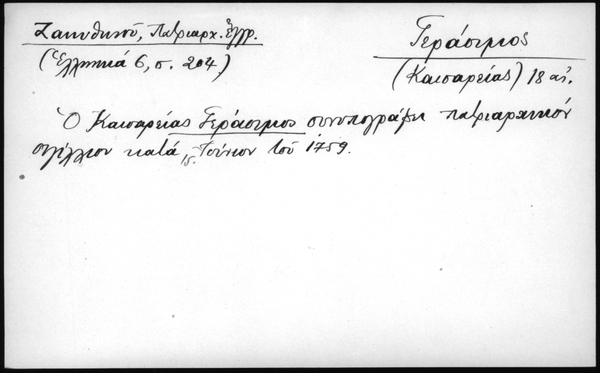 Ζακυθηνοῦ, Πατριαρχ. Ἔγγρ.
(Ἑλληνικά 6, σ. 204.)
Γεράσιμος
(Καισαρείας) 18 αἰ.
Ὁ Καισαρείας Γεράσιμος συνυπογράφει πατριαρχικόν
σιγίλλιον κατά 15, Ἰούνιον τοῦ 1759.